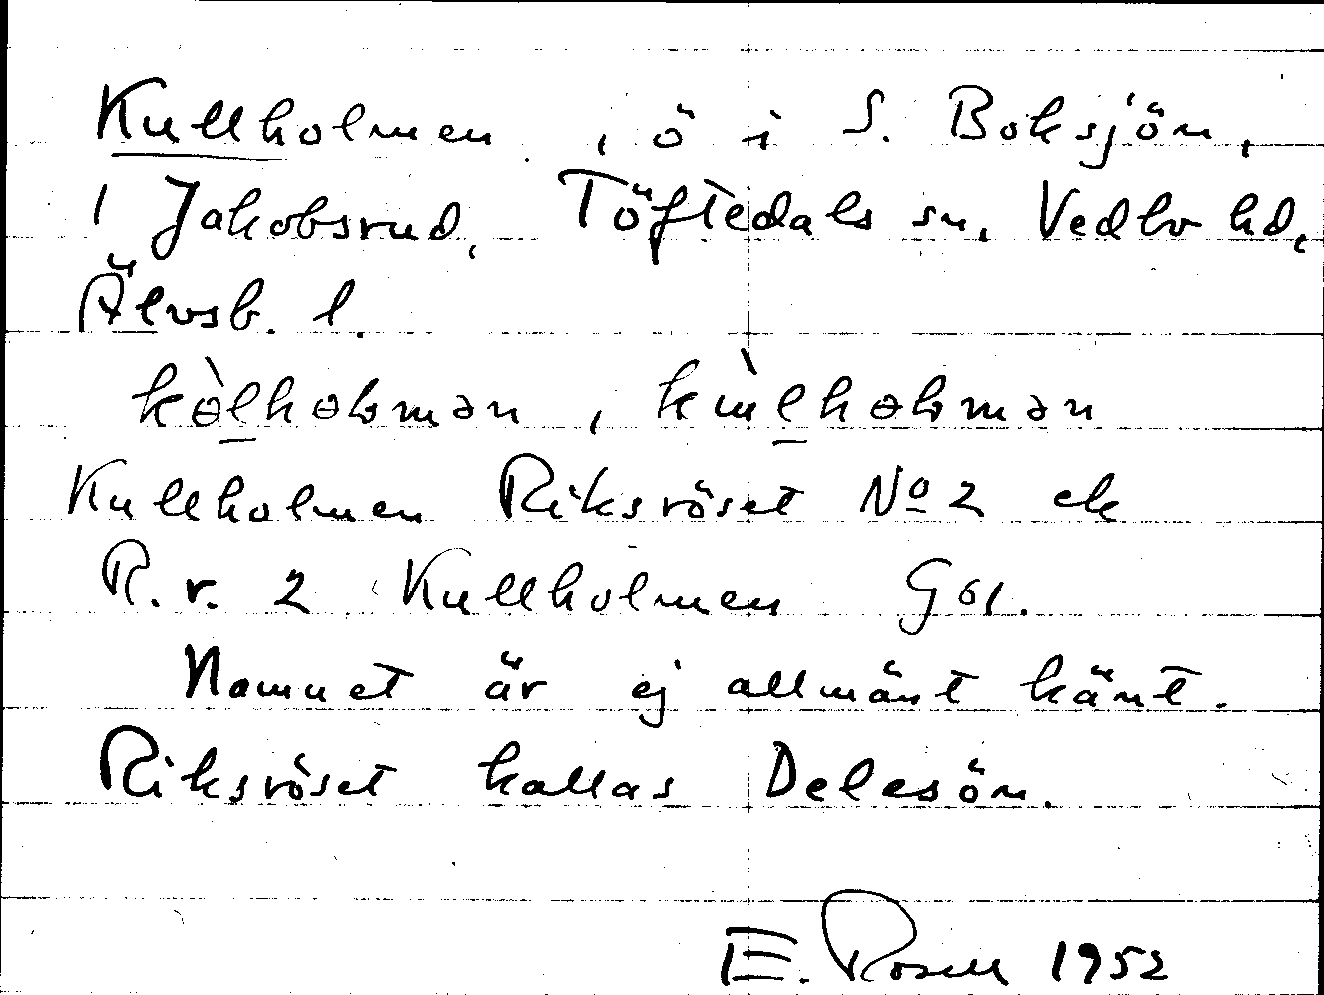 Kullholmen, ö i S. Boksjön,
1 Jakobsrud, Töftedals sn, Vedbo hd,
Älvsb. l.
kòlhɵlmən, kɯ̀lhɵlmən
Kullholmen Riksröset No 2 ek
R. r. 2 Kullholmen Göl.
Namnet är ej allmänt känt.
Riksröset kallas Delesön.
E. Rosell 1952